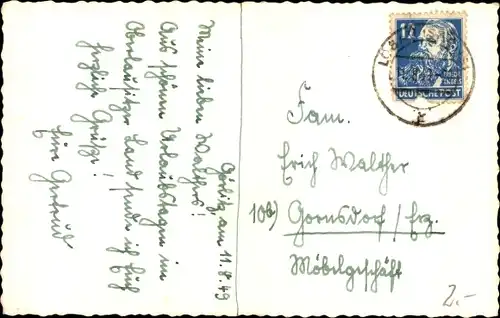 Görlitz, am 11.8.49
Meine lieben Walthers!
Aus schönen Urlaubstagen im
Oberlausitzer Land sende ich Euch
herzliche Grüße!
Eure Gertrud
Fam.
Erich Walther
10b) Gornsdorf / Erz.
Möbelgeschäft
2.-
DEUTSCHE POST